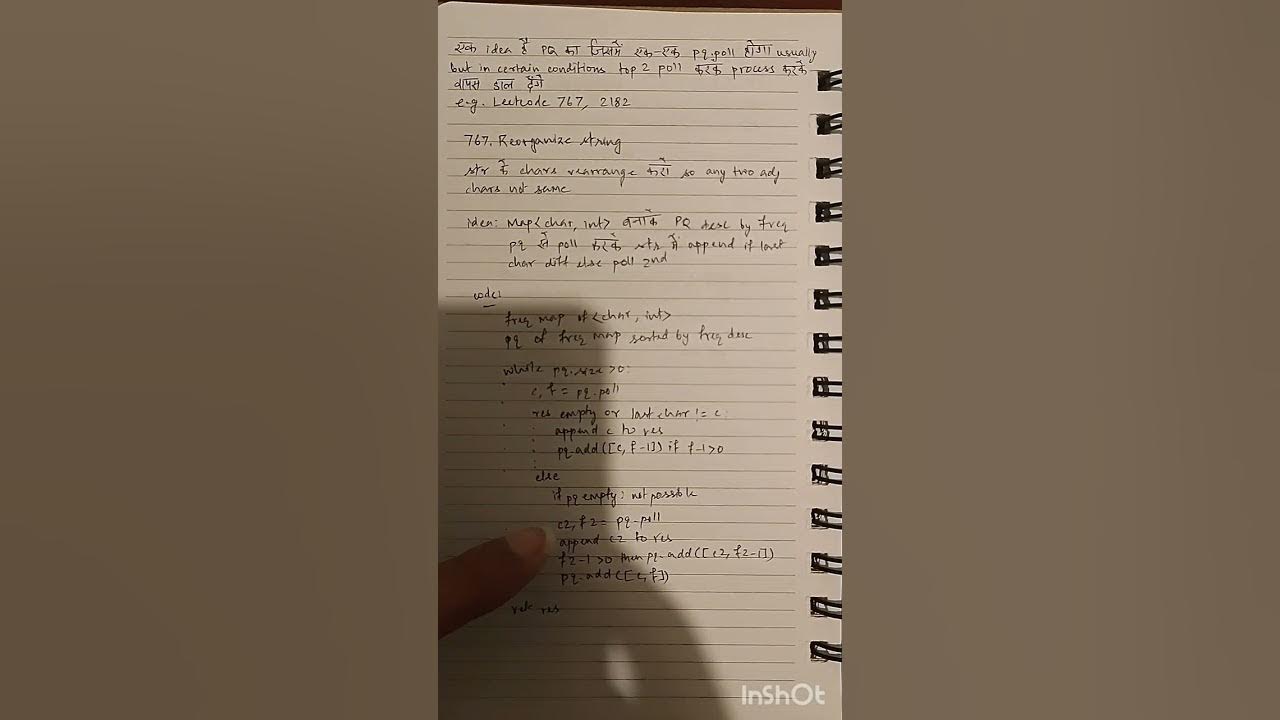 एक idea है PQ का जिसमें एक-एक pq.poll होगा usually
but in certain conditions top 2 poll करके process करके
वापस डाल देंगे
e.g. Leetcode 767, 2182
767. Reorganize string
str के chars rearrange करो so any two adj
chars not same
idea: Map<char, int> बनाके PQ desc by freq
pq से poll करके str में append if last
char diff else poll 2nd
code:
freq map of <char, int>
pq of freq map sorted by freq desc
while pq.size > 0:
c, f = pq.poll
res empty or last char != c:
append c to res
pq.add([c, f-1]) if f-1>0
else
if pq empty: not possible
c2, f2 = pq.poll
append c2 to res
f2-1>0 then pq.add([c2, f2-1])
pq.add([c, f])
ret res
InShOt